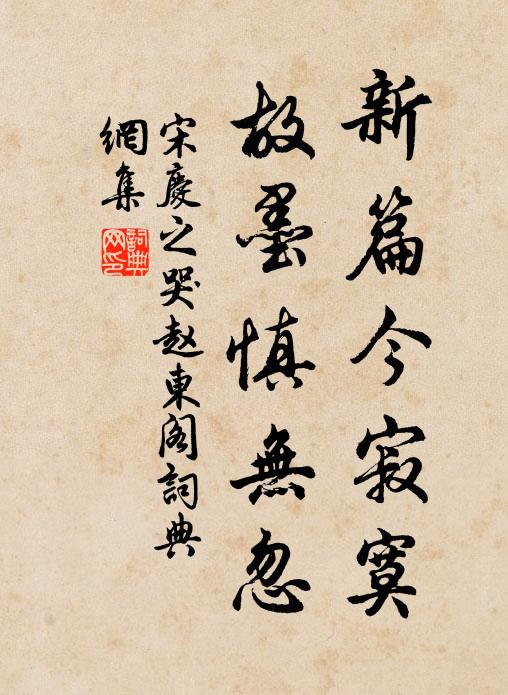 新篇今寂寞
故墨慎無忽
宋慶之哭趙東閣詞典
網集
詞典
网印